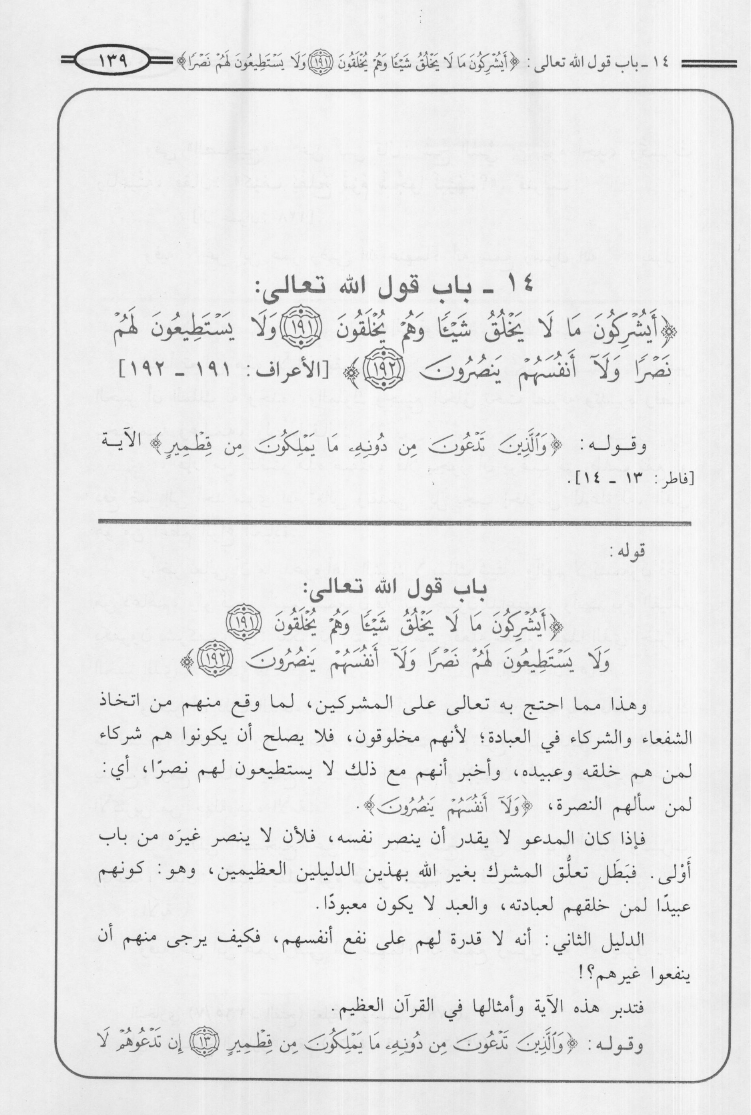 ١٤ ـ باب قول الله تعالى : ﴿أَيُشْرِكُونَ مَا لَا يَخْلُقُ شَيْئًا وَهُمْ يُخْلَقُونَ ١٩١ وَلَا يَسْتَطِيعُونَ لَهُمْ نَصْرًا﴾ ١٣٩
١٤ ـ باب قول الله تعالى:
﴿أَيُشْرِكُونَ مَا لَا يَخْلُقُ شَيْئًا وَهُمْ يُخْلَقُونَ ١٩١ وَلَا يَسْتَطِيعُونَ لَهُمْ
نَصْرًا وَلَآ أَنفُسَهُمْ يَنصُرُونَ ١٩٢﴾ [الأعراف: ١٩١ ـ ١٩٢]
وقـولـه: ﴿وَٱلَّذِينَ تَدْعُونَ مِن دُونِهِۦ مَا يَمْلِكُونَ مِن قِطْمِيرٍ﴾ الآيـة
[فاطر: ١٣ ـ ١٤].
قوله:
باب قول الله تعالى:
﴿أَيُشْرِكُونَ مَا لَا يَخْلُقُ شَيْئًا وَهُمْ يُخْلَقُونَ ١٩١
وَلَا يَسْتَطِيعُونَ لَهُمْ نَصْرًا وَلَآ أَنفُسَهُمْ يَنصُرُونَ ١٩٢﴾
وهذا مما احتج به تعالى على المشركين، لما وقع منهم من اتخاذ
الشفعاء والشركاء في العبادة؛ لأنهم مخلوقون، فلا يصلح أن يكونوا هم شركاء
لمن هم خلقه وعبيده، وأخبر أنهم مع ذلك لا يستطيعون لهم نصرًا، أي:
لمن سألهم النصرة، ﴿وَلَآ أَنفُسَهُمْ يَنصُرُونَ﴾.
فإذا كان المدعو لا يقدر أن ينصر نفسه، فلأن لا ينصر غيرَه من باب
أَوْلى. فبَطَل تعلُّق المشرك بغير الله بهذين الدليلين العظيمين، وهو: كونهم
عبيدًا لمن خلقهم لعبادته، والعبد لا يكون معبودًا.
الدليل الثاني: أنه لا قدرة لهم على نفع أنفسهم، فكيف يرجى منهم أن
ينفعوا غيرهم؟!
فتدبر هذه الآية وأمثالها في القرآن العظيم.
وقـولـه: ﴿وَٱلَّذِينَ تَدْعُونَ مِن دُونِهِۦ مَا يَمْلِكُونَ مِن قِطْمِيرٍ ١٣ إِن تَدْعُوهُمْ لَا